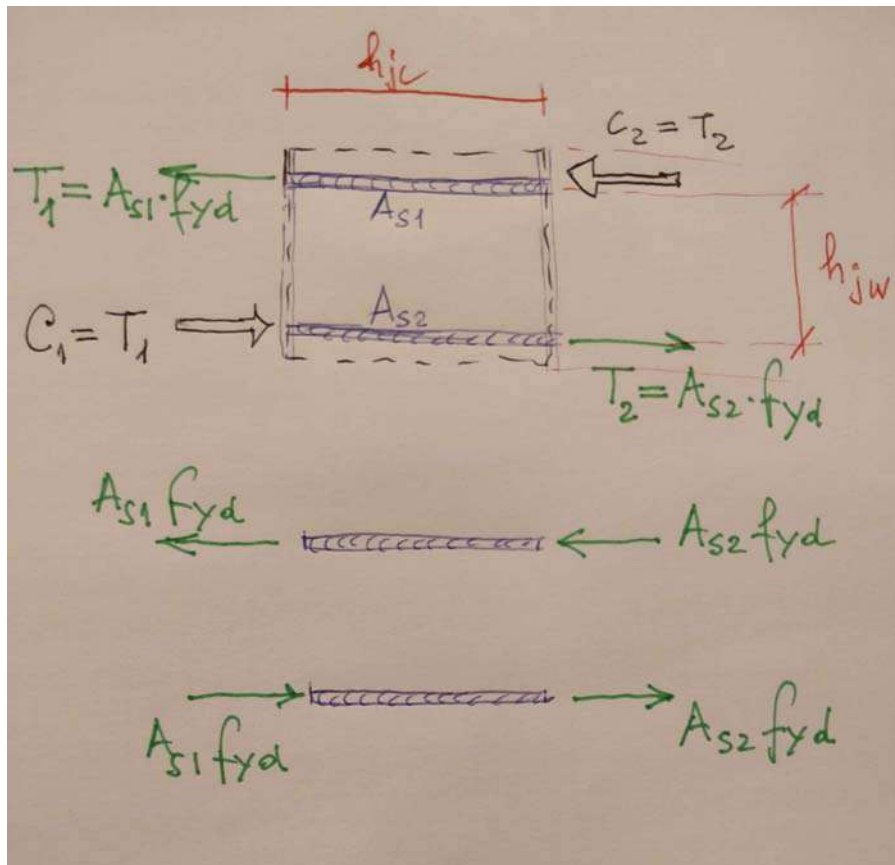 hjc
C2 = T2
T1 = As1·fyd
As1
hjw
As2
C1 = T1
T2 = As2·fyd
As1 fyd
As2 fyd
As1 fyd
As2 fyd